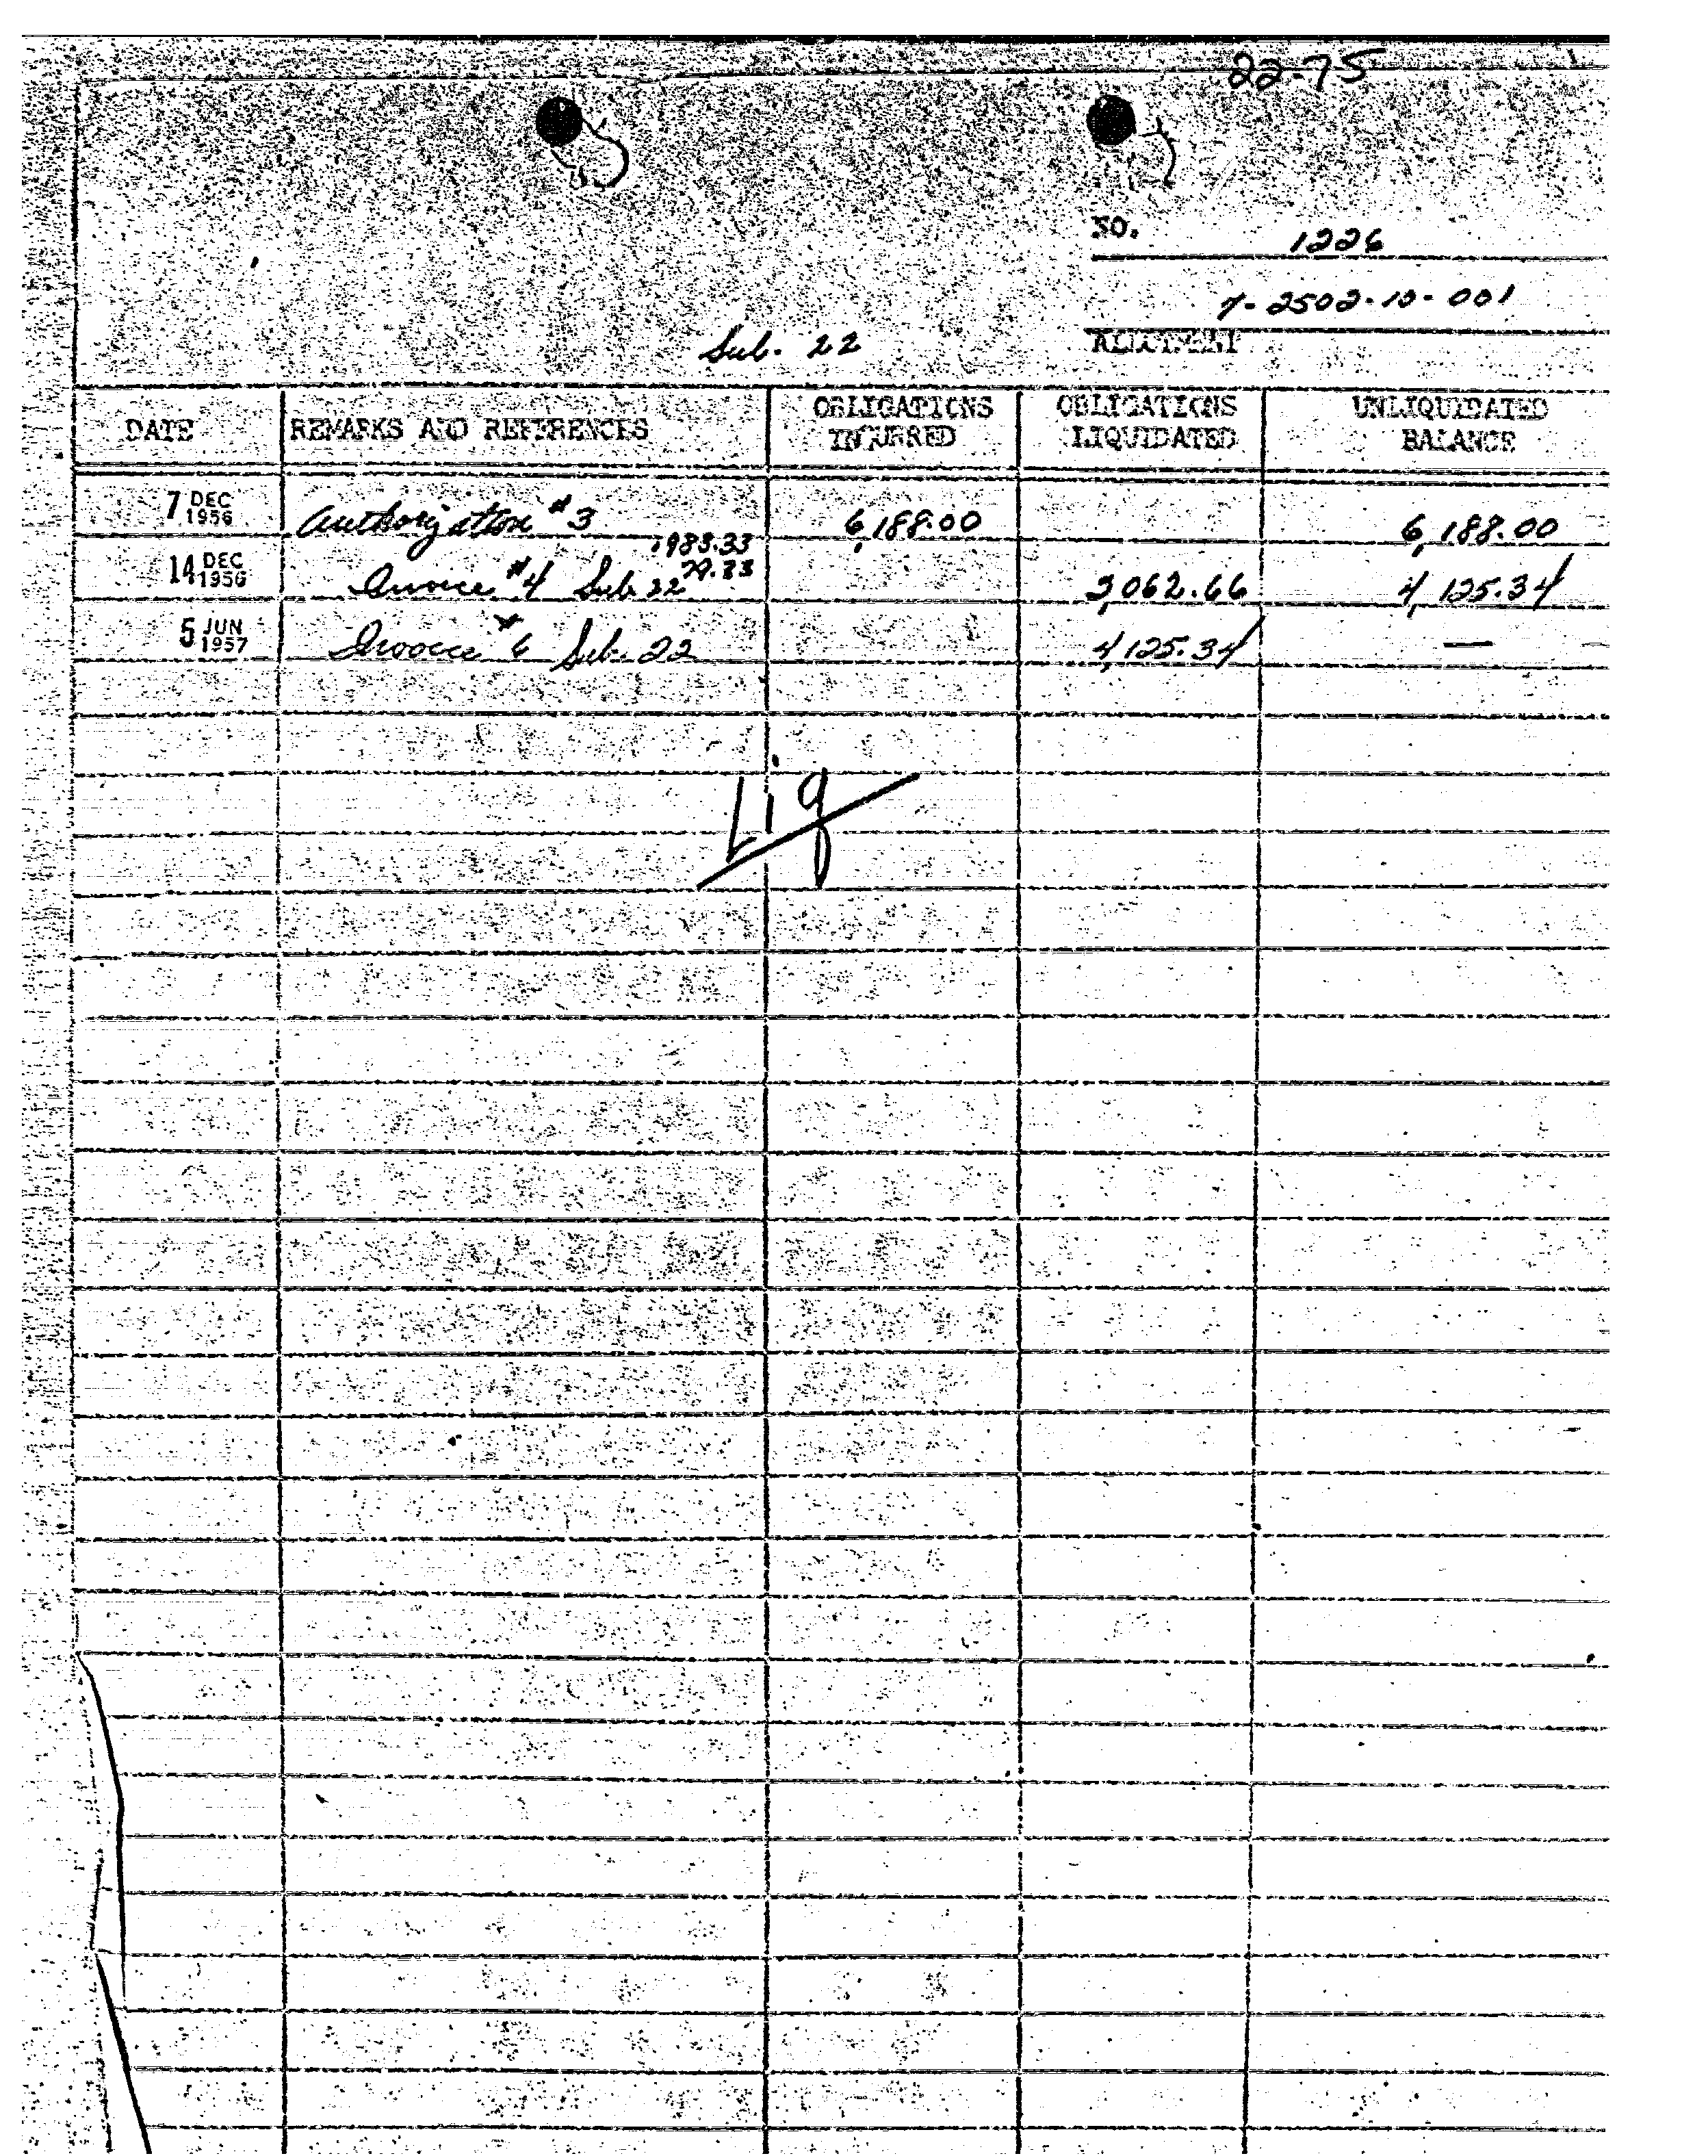 22-75
NO. 1226
7-2502-10-001
Sub. 22
ALLOTMENT
DATE REMARKS AND REFERENCES OBLIGATIONS INCURRED OBLIGATIONS LIQUIDATED UNLIQUIDATED BALANCE
7 DEC 1956 Authorization #3 6,188.00 6,188.00
1983.33
79.33
14 DEC 1956 Invoice #4 Sub. 22 2,062.66 4,125.34
5 JUN 1957 Invoice #6 Sub. 22 4,125.34 —
Liq